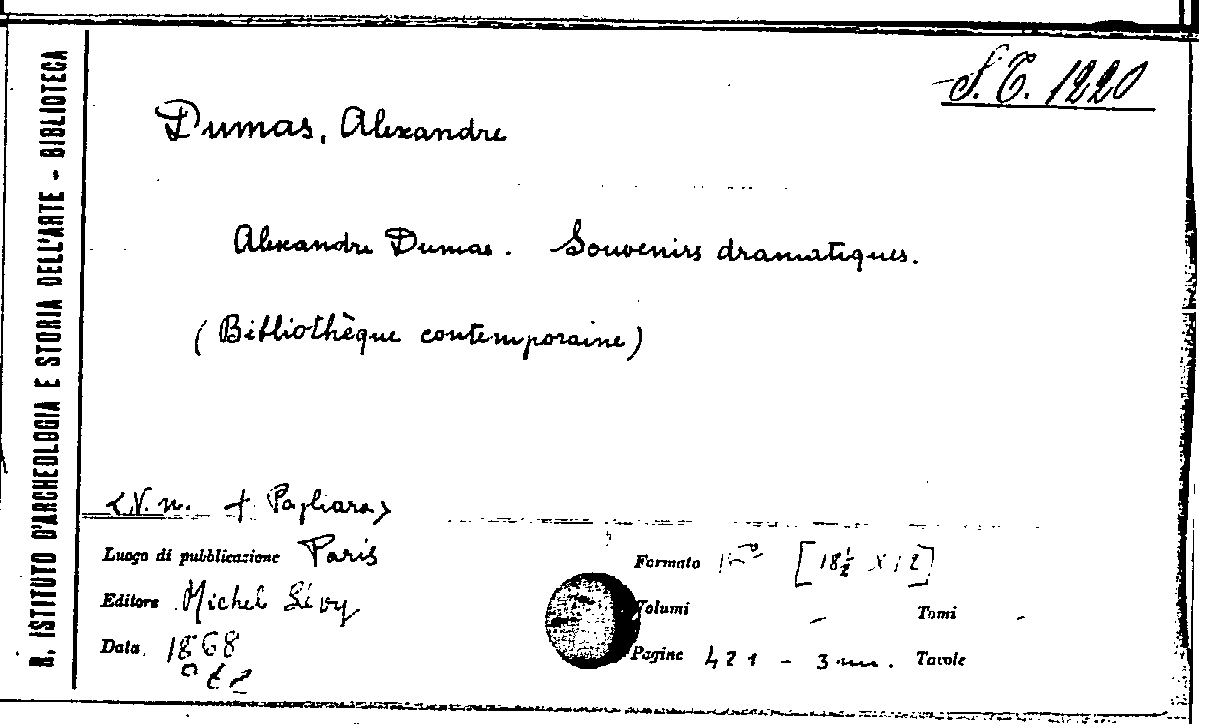 R. ISTITUTO D'ARCHEOLOGIA E STORIA DELL'ARTE - BIBLIOTECA
S.T. 1220
Dumas, Alexandre
Alexandre Dumas. Souvenirs dramatiques.
(Bibliothèque contemporaine)
<N. n. + Pagliara>
Luogo di pubblicazione Paris
Formato [18½ X 12]
Editore Michel Lévy
Volumi - Tomi -
Data 1868
Pagine 421 - 3 nn. Tavole